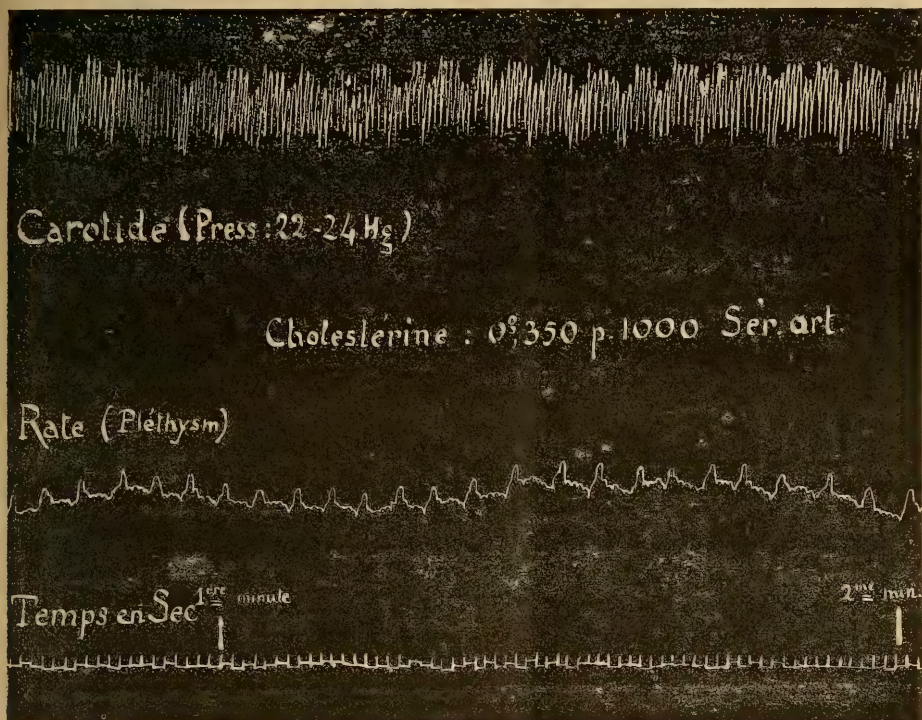 Carotide (Press : 22-24 Hg)
Cholestérine : 0g,350 p. 1000 Sér. art.
Rate (Pléthysm)
Temps en Sec 1ère minute
2me min.